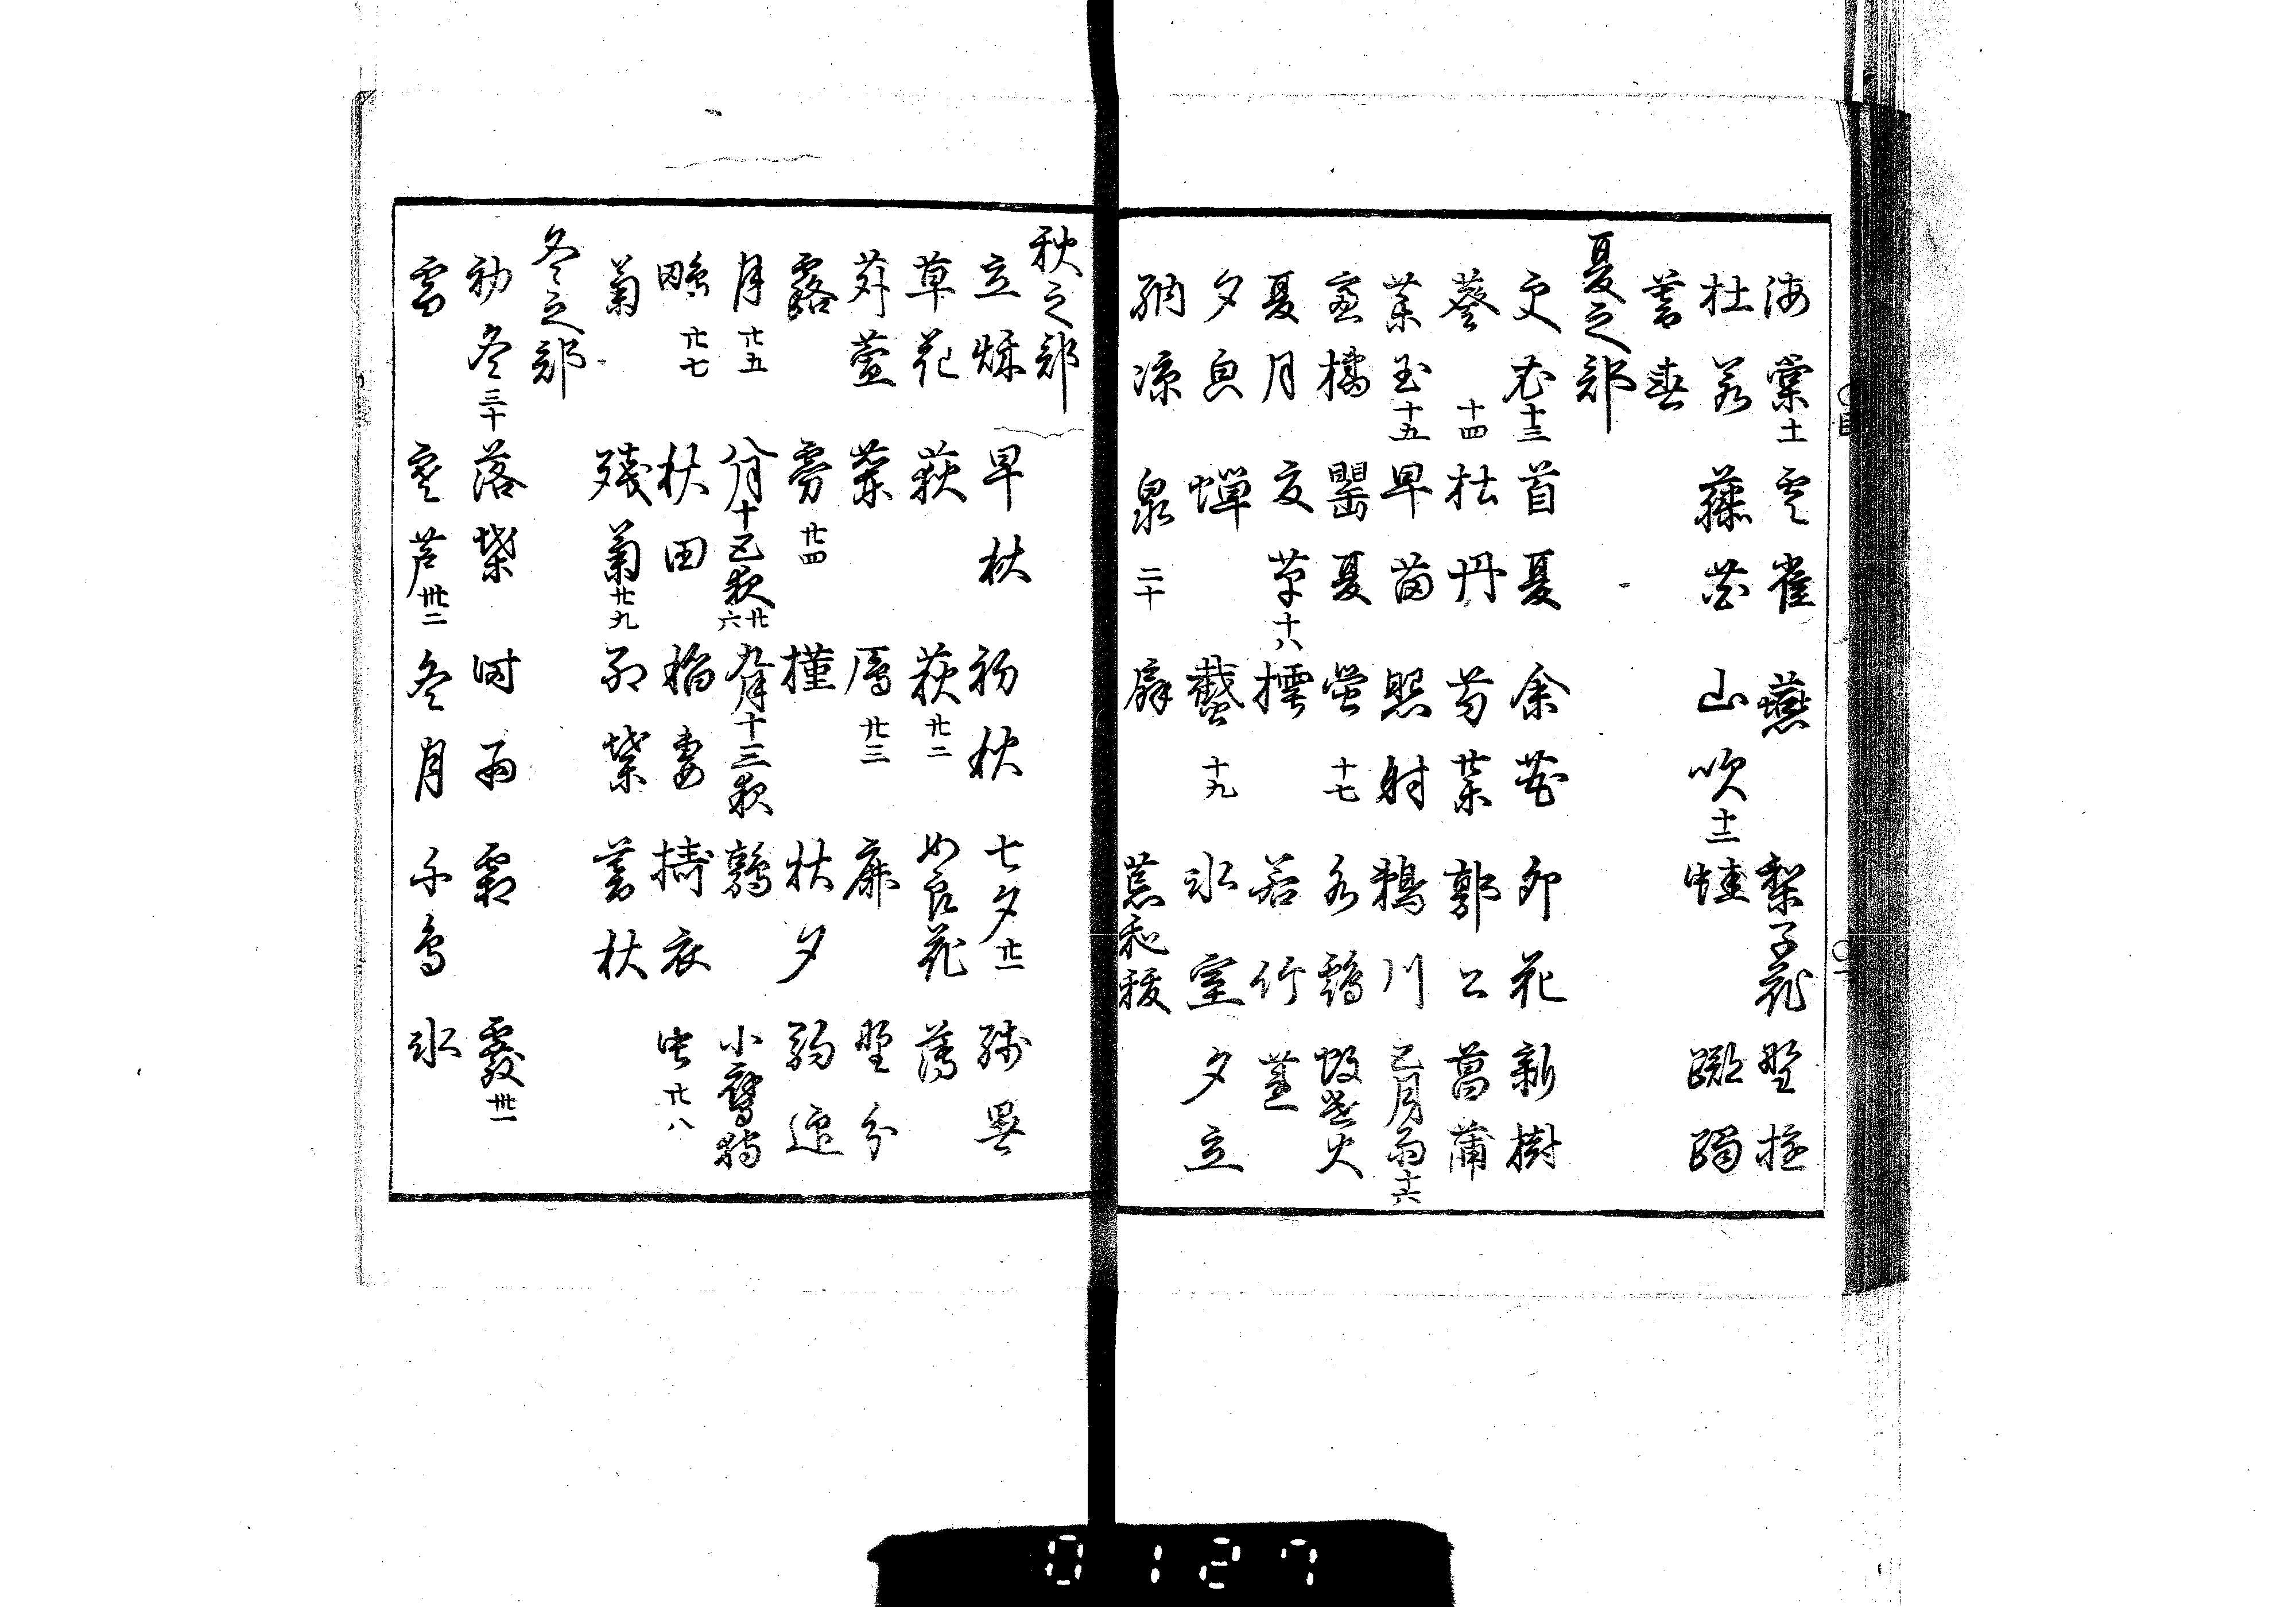 海棠 十一 雲雀 燕 梨子花 野遊
杜若 藤花 山吹 十二 蛙 躑躅
暮春
夏之部
更衣 十三 首夏 余花 卯花 新樹
葵 十四 牡丹 芍薬 郭公 菖蒲
薬玉 十五 早苗 照射 鵜川 五月雨 十六
盧橘 罌夏 蛍 十七 水鶏 蚊遣火
夏月 夏草 十八 樗 若竹 蓮
夕皃 蝉 蠶 十九 氷室 夕立
納涼 泉 二十 扇 荒和秡
秋之部
立秌 早秋 初秋 七夕 廿一 残暑
草花 荻 萩 廿二 女良花 薄
苅萱 蘭 鴈 廿三 鹿 野分
露 雰 廿四 槿 秋夕 駒迎
月 廿五 八月十五夜 廿六 九月十三夜 鶉 小鷹狩
鴫 廿七 秋田 稲妻 擣衣 虫 廿八
菊 残菊 廿九 紅葉 暮秋
冬之部
初冬 三十 落葉 時雨 霜 霰 卅一
雪 寒芦 卅二 冬月 千鳥 氷
0127